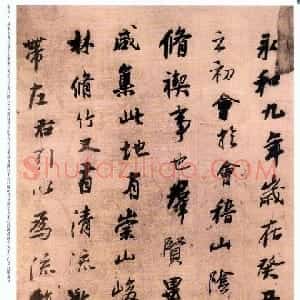 永和九年歲在癸丑
之初會於會稽山陰
脩禊事也羣賢畢
咸集此地有崇山峻
林脩竹又有清流激
帶左右引以為流
Shufaziliao.com